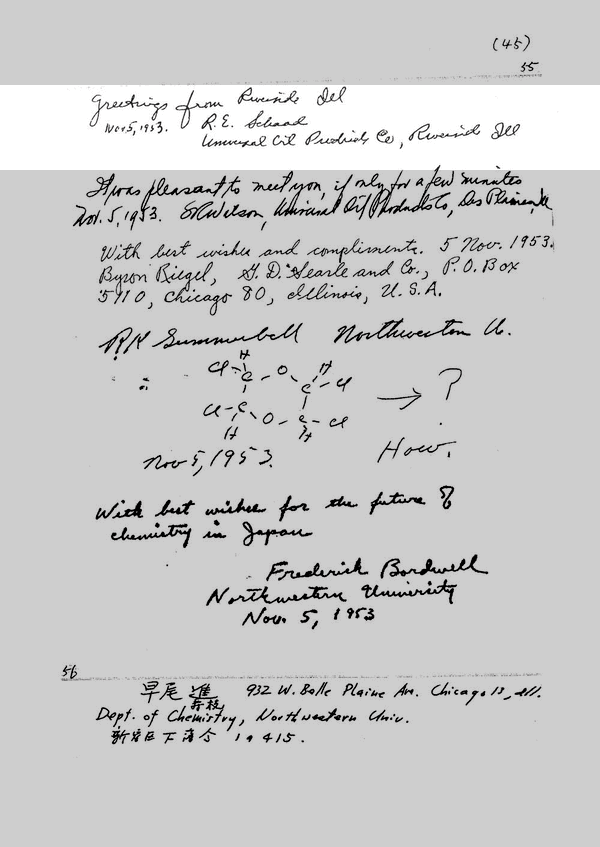 (45)
55
Greetings from Riverside Ill
Nov 5, 1953.
R.E. Schaad
Universal Oil Products Co, Riverside Ill
It was pleasant to meet you, if only for a few minutes
Nov. 5, 1953. Universal Oil Products Co, Des Plaines, Ill
With best wishes and compliments. 5 Nov. 1953.
Byron Riegel, G. D. Searle and Co., P.O. Box
5110, Chicago 80, Illinois, U.S.A.
R.K. Summerbell Northwestern U.
H
Cl C O H
C Cl
→ ?
Cl C O C Cl
H H
Nov 5, 1953. How.
With best wishes for the future of
chemistry in Japan
Frederick Bordwell
Northwestern University
Nov. 5, 1953
56
早尾 進 932 W. Belle Plaine Ave. Chicago 13, Ill.
Dept. of Chemistry, Northwestern Univ.
新宿区下落合 1の415.